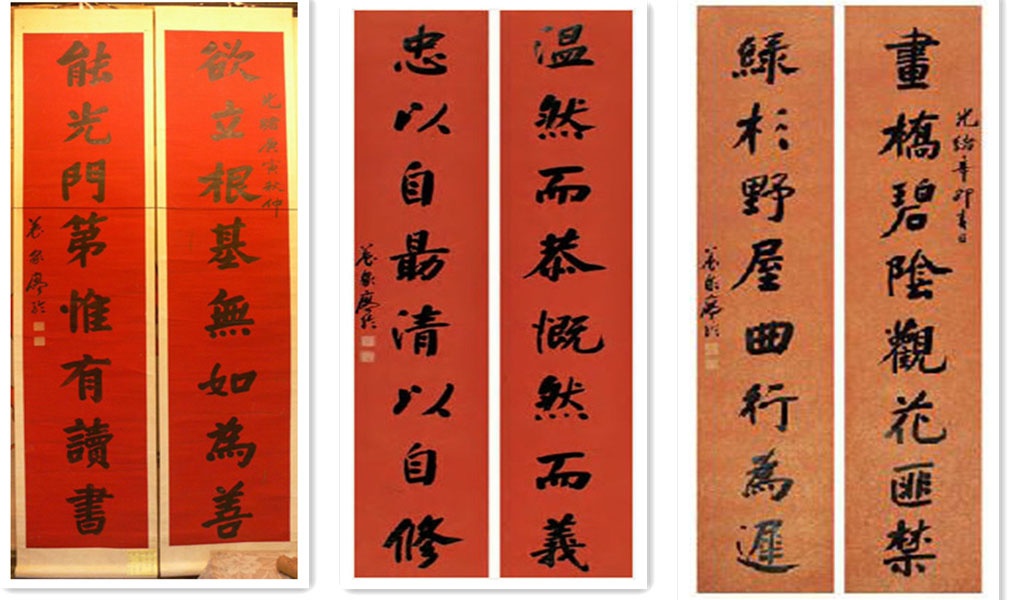 欲立根基無如為善
光緒庚寅秋仲
能光門第惟有讀書
養泉廖綸
溫然而恭慨然而義
忠以自勗清以自修
養泉廖綸
畫橋碧陰觀花匪禁
光緒辛卯春日
綠杉野屋曲行為遲
養泉廖綸